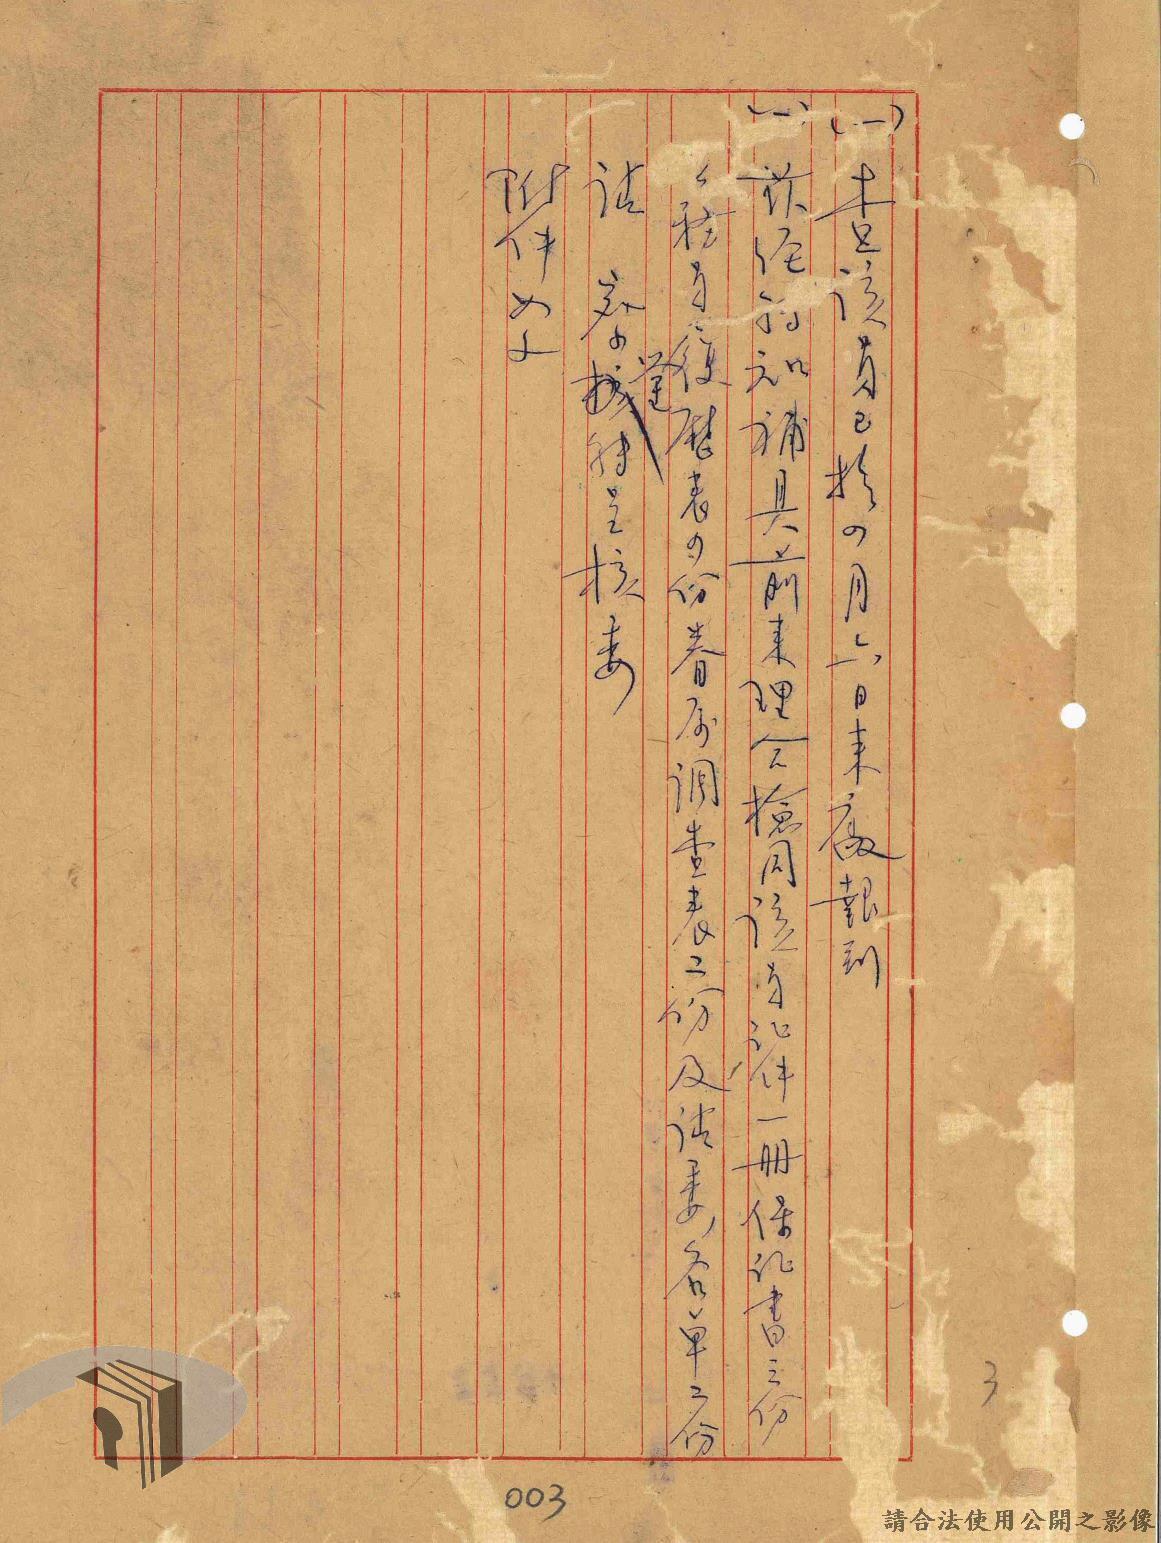 (一)查該員已於四月六日來廠報到
(二)茲經詢知補具前来理合檢同該員証件一冊保証書三份
公務員履歷表四份眷属調查表二份及請委名單二份
請 察核轉呈核委
鑒
附件如文
3
003
請合法使用公開之影像